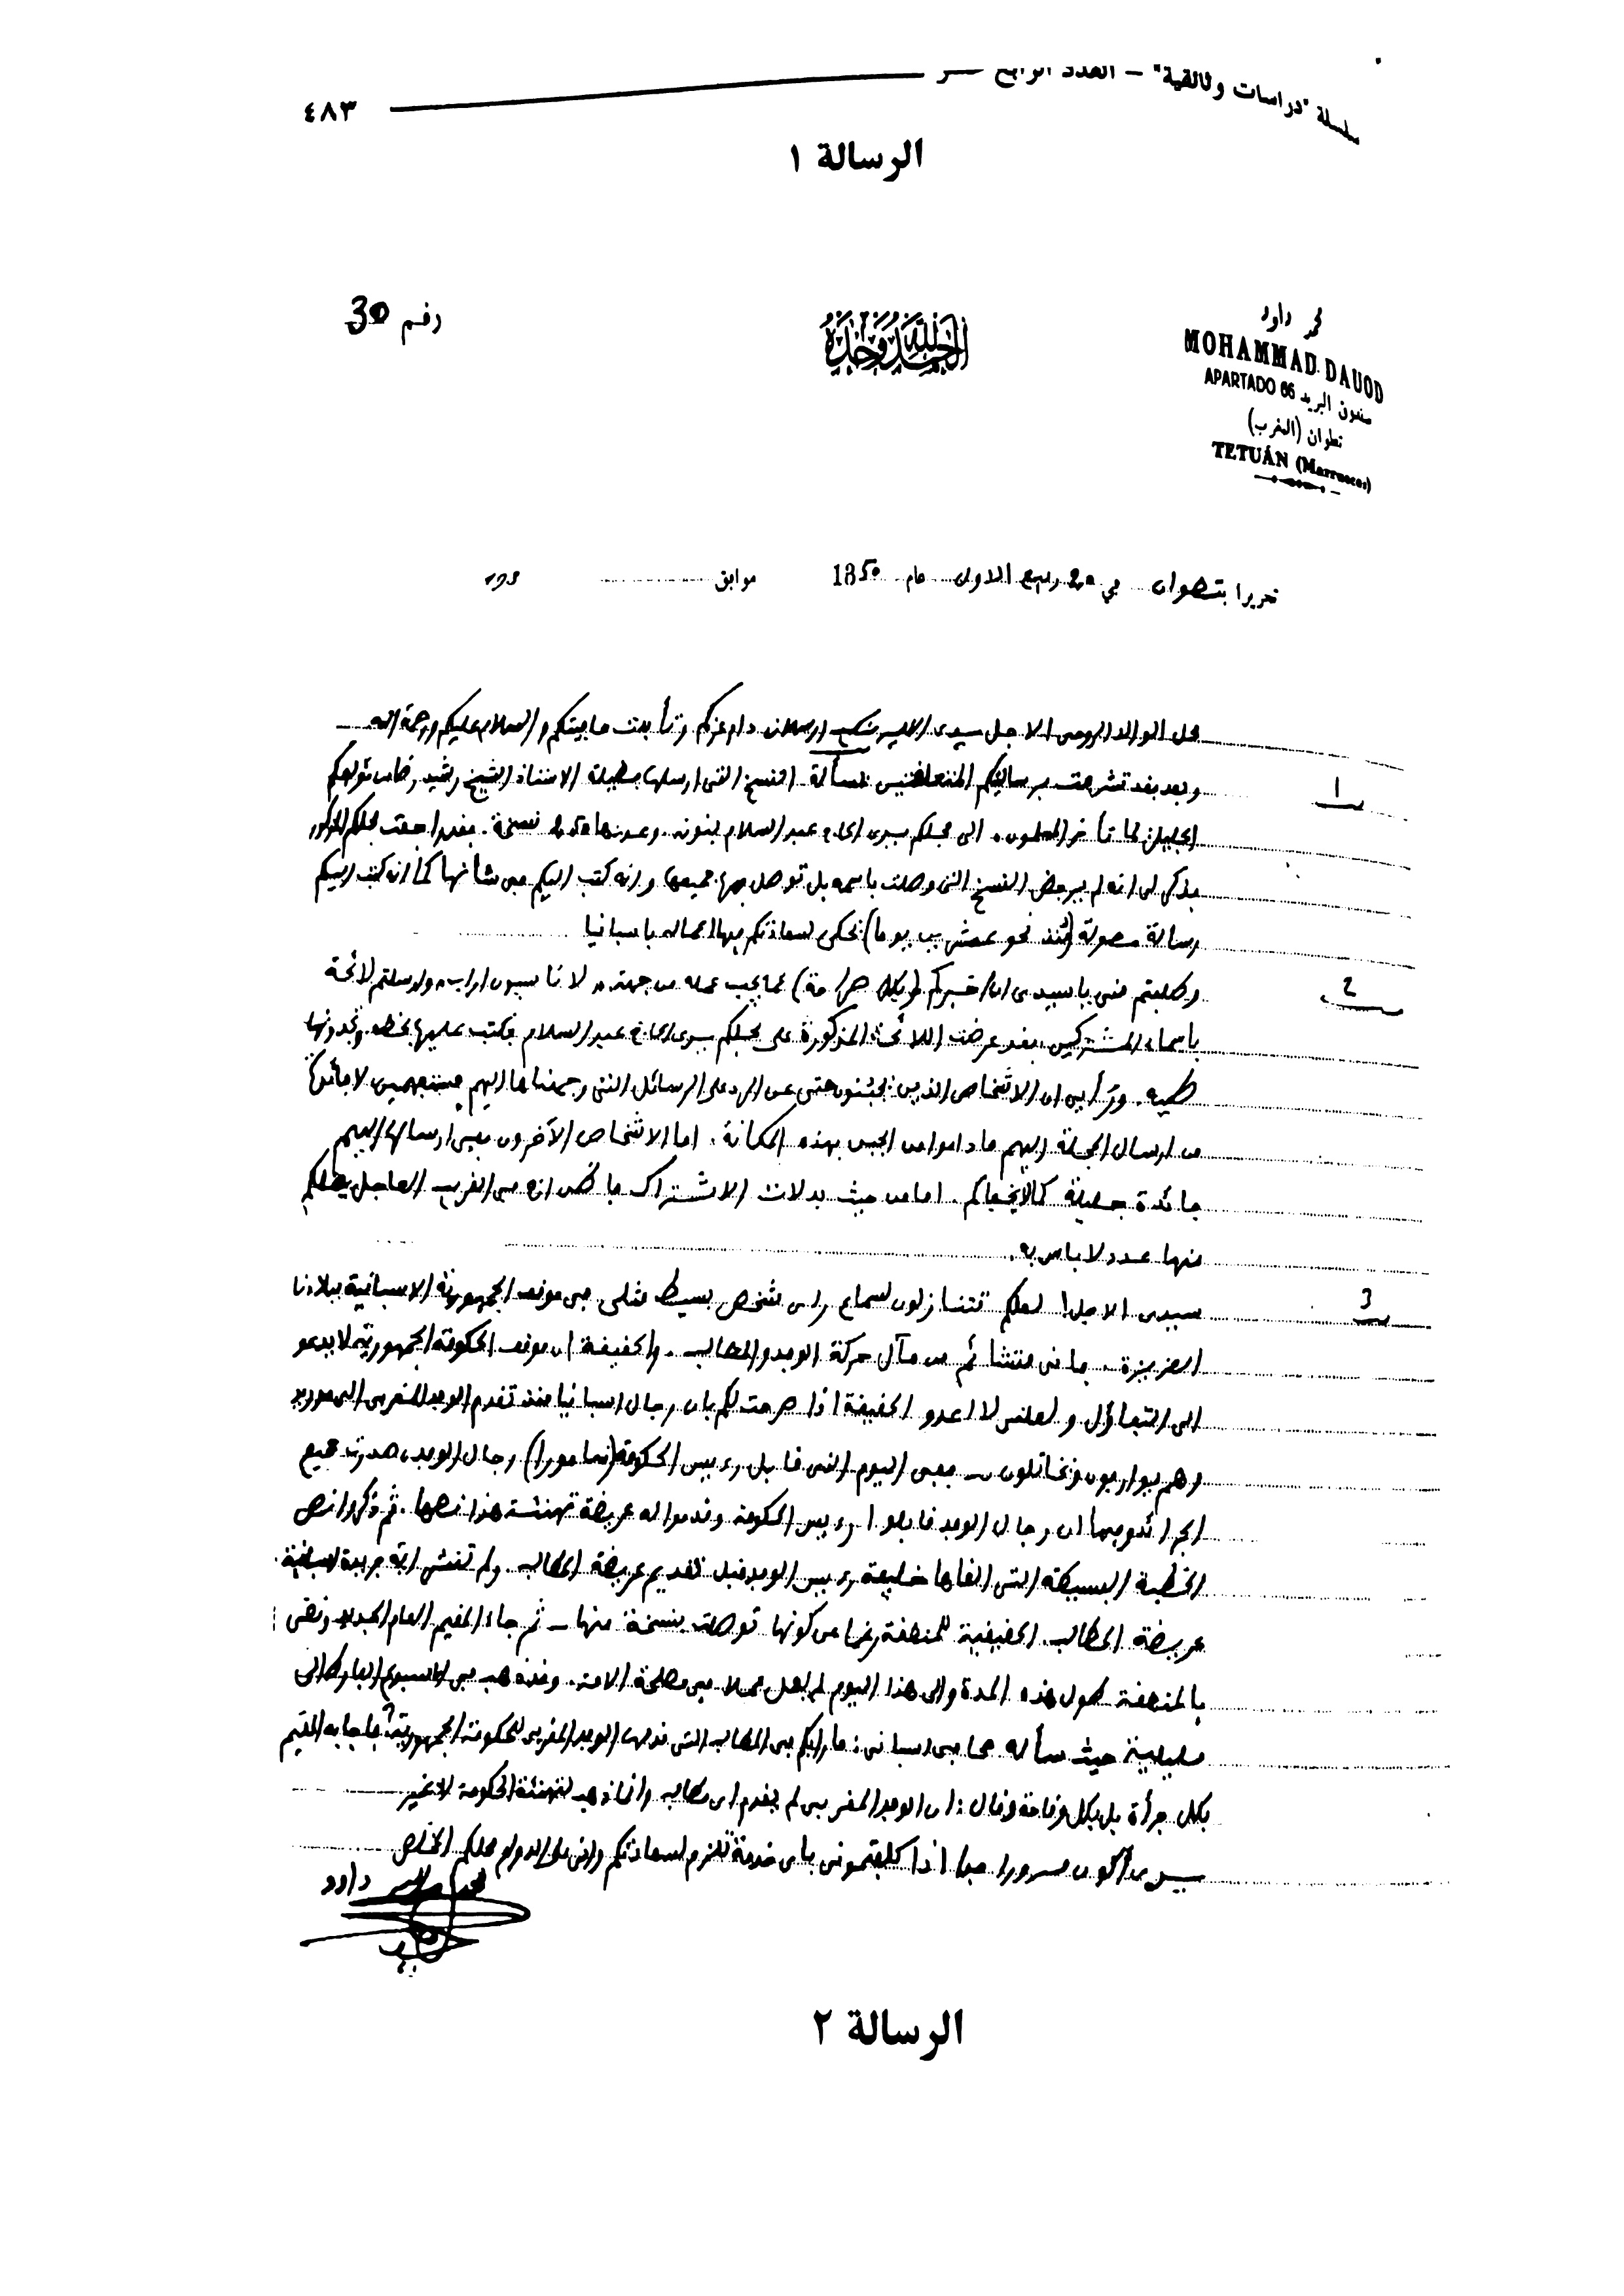 سلسلة "دراسات وثائقية" – العدد الرابع عشر
٤٨٣
الرسالة ١
محمد داود
MOHAMMAD DAUOD
APARTADO 66 صندوق البريد
تطوان (المغرب)
TETUÁN (Marruecos)
الحمد لله وحده
رقم 30
تحريرا بتطوان في 20 ربيع الاول عام 1350 موافق
محل الوالد الروحي الاجل سيدي الامير شكيب ارسلان دام عزكم و السلام عليكم ورحمة الله
1 وبعد فقد تشرفت برسالتيكم المتعلقتين بمسألة النسخ التي ارسلها فضيلة الاستاذ الشيخ رشيد
الى نجلكم سيدي الحاج عبد السلام بنونه. وعددها نسخة. فقد راجعت نجلكم المذكور
فذكر لي انه لم يرفض النسخ التي وصلت باسمه بل توصل بها جميعها وانه كتب اليكم في شأنها كما انه كتب اليكم
رسالة مطولة (منذ نحو عشرين يوما) يحكي لسعادتكم فيها اعماله باسبانيا
2 وطلبتم مني ياسيدي ان اخبركم (وبكل صراحة) عما يجب عمله من جهة لاناسيون اراب، وارسلتم لائحة
باسماء المشتركين، فقد عرضت اللائحة المذكورة على نجلكم سيدي الحاج عبد السلام فكتب عليها بخطه. وتجدونها
طيه. ورأيي ان الاشخاص الذين يجبنون حتى عن الرد على الرسائل التي وجهناها اليهم مستفهمين لا فائدة
من ارسال المجلة اليهم ما داموا من الجبن بهذه المكانة. اما الاشخاص الآخرون ففي ارسالها اليهم
فائدة جليلة كما لا يخفاكم. اما من حيث بدلات الاشتراك فاظن انه في القريب العاجل يصلكم
منها عدد لا باس به.
3 سيدي الاجل! لعلكم تتنازلون لسماع راي شخص بسيط مثلي في موقف الجمهورية الاسبانية ببلادنا
العزيزة. فاني متشائم من مآل حركة الوفد والمطالب. والحقيقة ان موقف الحكومة الجمهورية لا يدعو
الى التفاؤل ولعلني لا اعدو الحقيقة اذا صرحت لكم بان رجال اسبانيا منذ تقدم الوفد المغربي الى مدريد
وهم يواربون ويخاتلون – ففي اليوم الذي قابل رءيس الحكومة (زامورا) رجال الوفد، صدرت جميع
الجرائد وفيها ان رجال الوفد قابلوا رءيس الحكومة وقدموا له عريضة تهنئة هذا نصها. ثم ذكروا نص
الخطبة البسيطة التي القاها خليفة رءيس الوفد قبل تقديم عريضة المطالب. ولم تنشر اية جريدة اسبانية
عريضة المطالب الحقيقية للمنطقة رغما عن كونها توصلت بنسخة منها – ثم جاء المقيم العام الجديد وبقى
بالمنطقة طول هذه المدة والى هذا اليوم لم يعمل عملا في مصلحة الامة. وقد ذهب في الاسبوع الفارط الى
مليلية حيث سأله صحافي اسباني: ما رايكم في المطالب التي قدمها الوفد المغربي للحكومة الجمهورية؟ فاجابه المقيم
بكل جرأة بل بكل وقاحة وقال: ان الوفد المغربي لم يقدم اي مطالب وانما ذهب لتهنئة الحكومة لا غير
سيدي أكون مسرورا جدا اذا كلفتموني باي خدمة تلزم لسعادتكم وانني على الدوام محلكم المخلص
محمد داود
الرسالة ٢